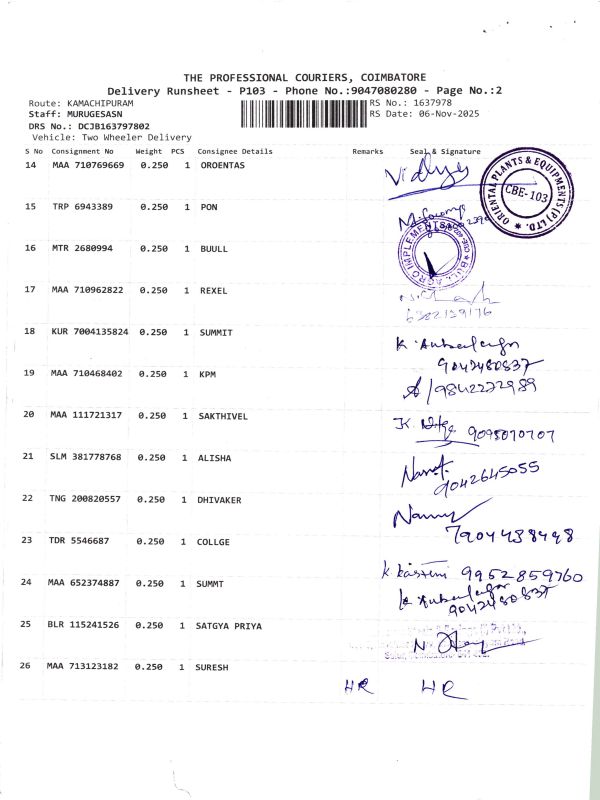 THE PROFESSIONAL COURIERS, COIMBATORE
Delivery Runsheet - P103 - Phone No.:9047080280 - Page No.:2
Route: KAMACHIPURAM RS No.: 1637978
Staff: MURUGESASN RS Date: 06-Nov-2025
DRS No.: DCJB163797802
Vehicle: Two Wheeler Delivery
S No Consignment No Weight PCS Consignee Details Remarks Seal & Signature
14 MAA 710769669 0.250 1 OROENTAS Vidhya
ORIENTAL PLANTS & EQUIPMENTS (P) LTD. ★
CBE-103
15 TRP 6943389 0.250 1 PON
16 MTR 2680994 0.250 1 BUULL
BULL AGRO IMPLEMENTS
17 MAA 710962822 0.250 1 REXEL
6382129176
18 KUR 7004135824 0.250 1 SUMMIT K.
9042480837
19 MAA 710468402 0.250 1 KPM
9842272989
20 MAA 111721317 0.250 1 SAKTHIVEL K.
9095070707
21 SLM 381778768 0.250 1 ALISHA
9042645055
22 TNG 200820557 0.250 1 DHIVAKER
7904438498
23 TDR 5546687 0.250 1 COLLGE
K 9952859760
24 MAA 652374887 0.250 1 SUMMT K.
9042480837
25 BLR 115241526 0.250 1 SATGYA PRIYA N.
26 MAA 713123182 0.250 1 SURESH
HR HR